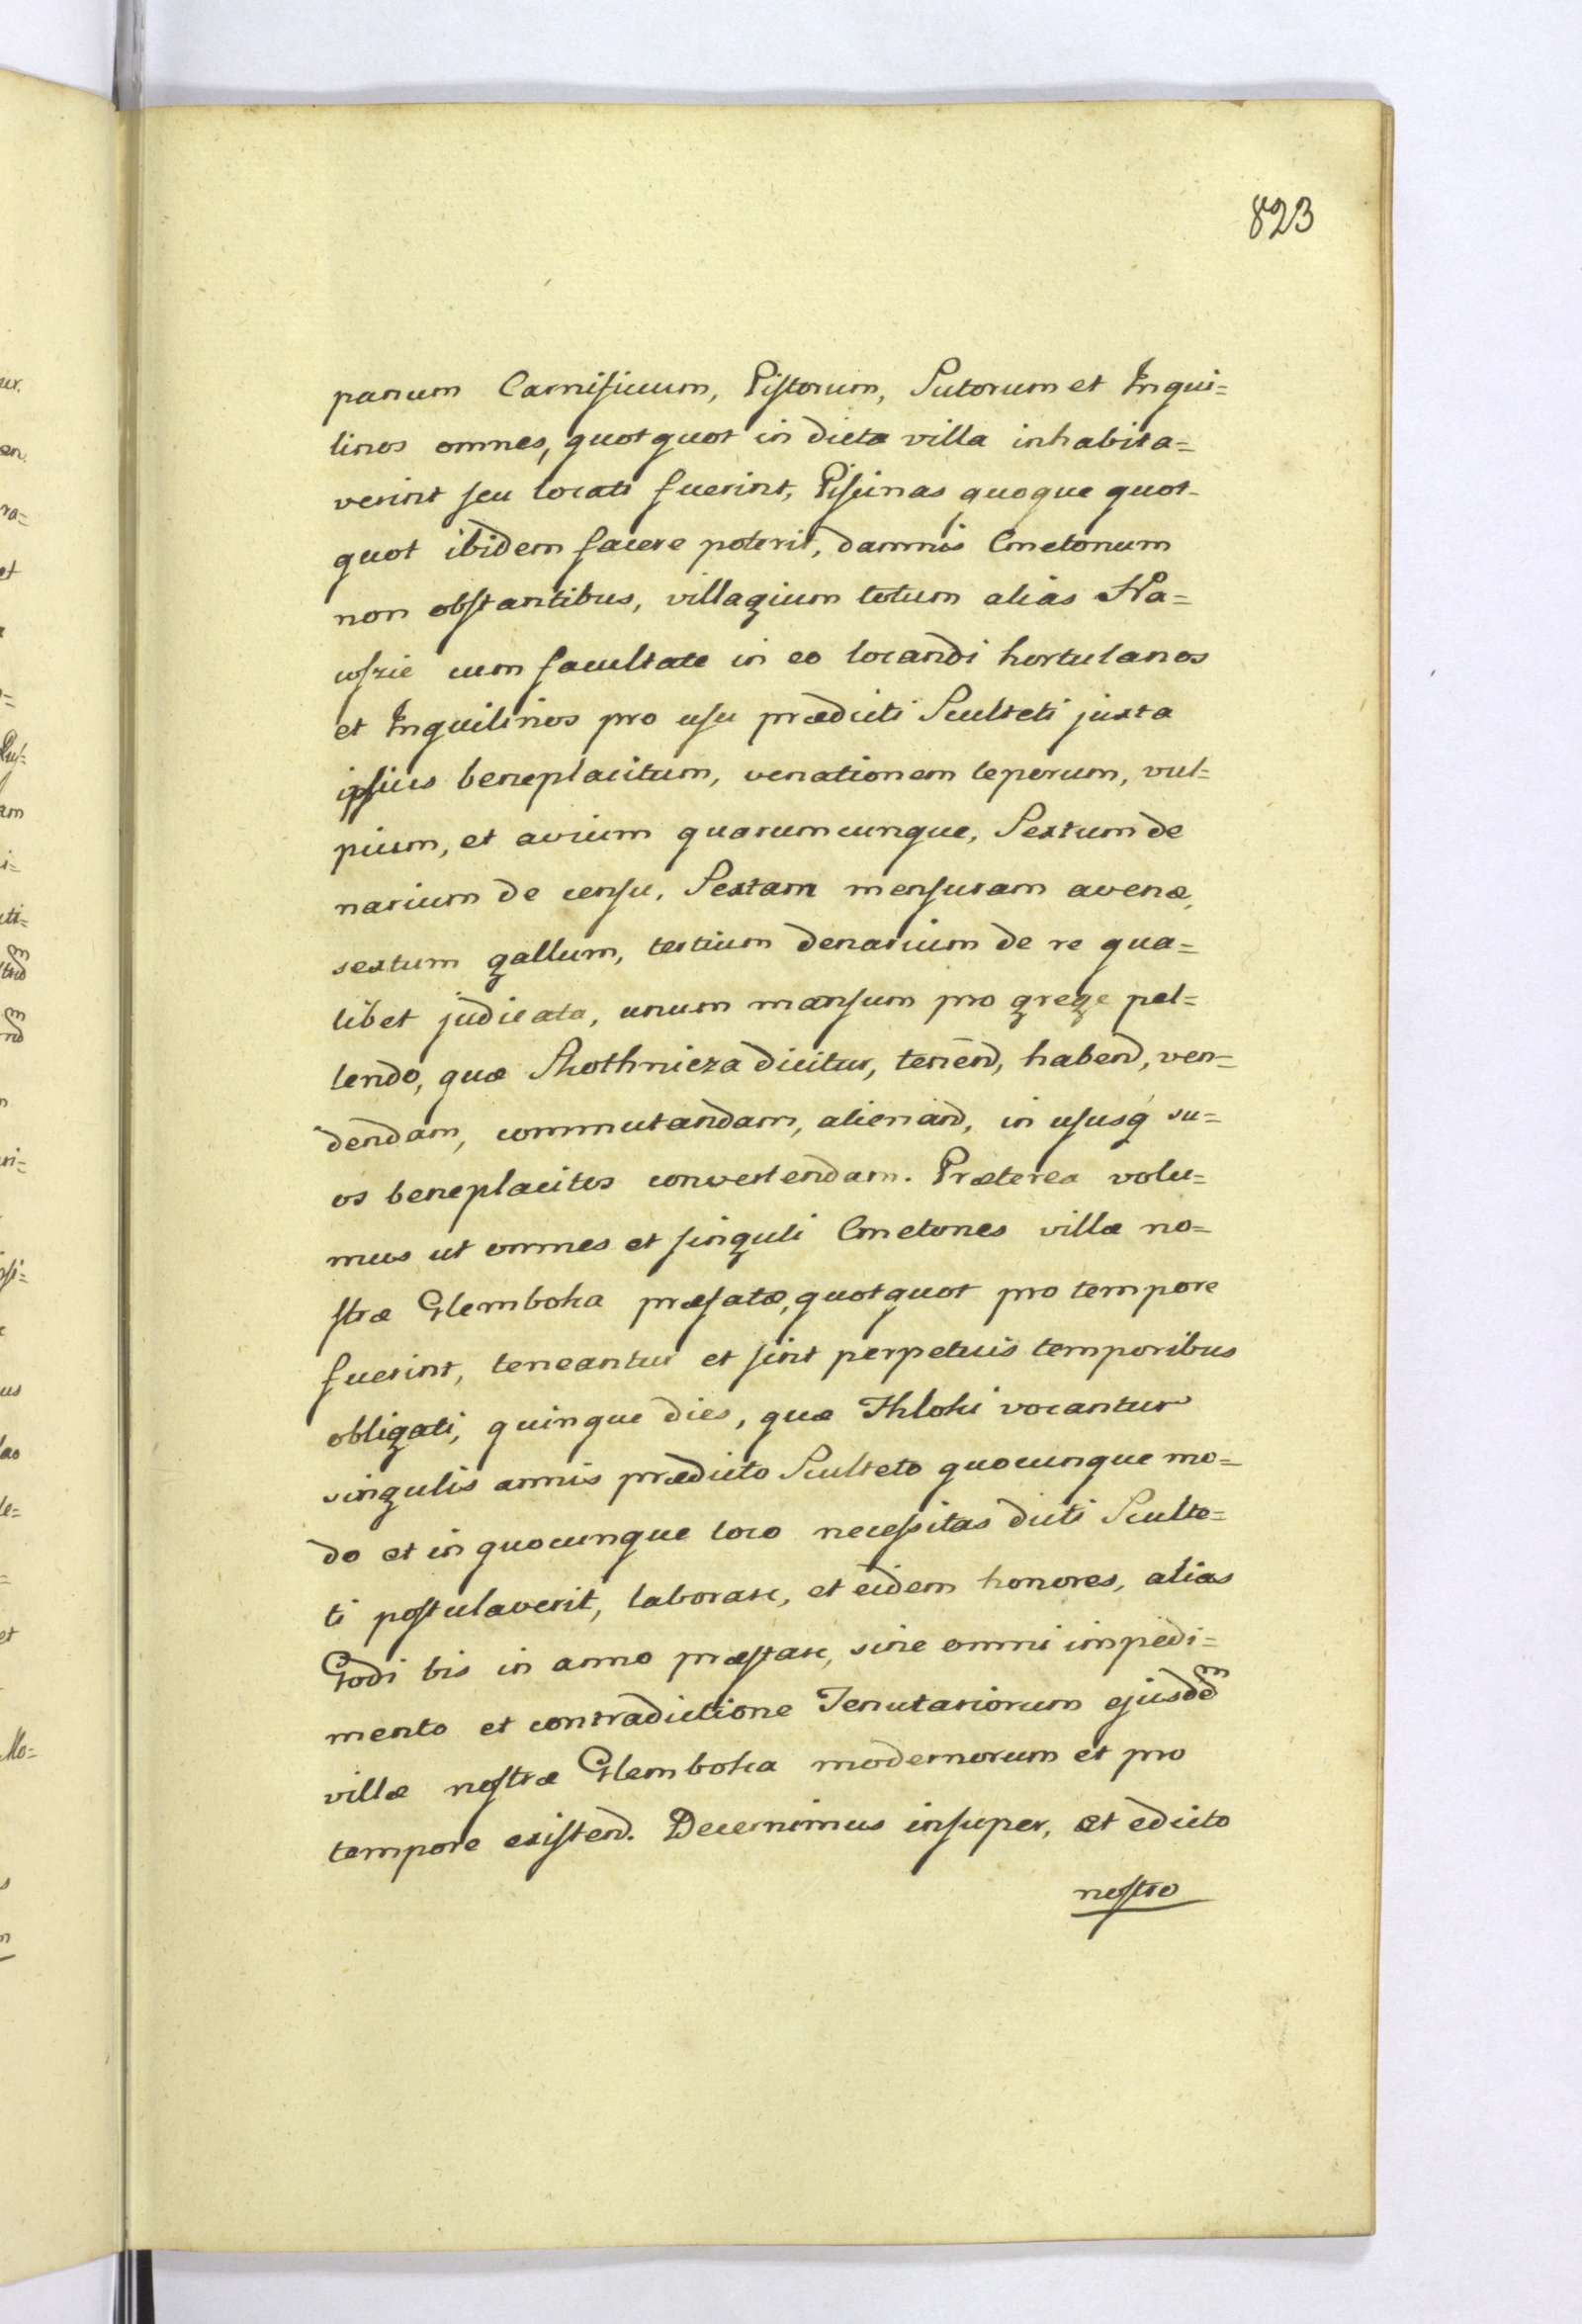 823
panum Carnificum, Pistorum, Sutorum et Inqui=
linos omnes, quotquot in dicta villa inhabita=
verint seu locati fuerint, Piscinas quoque quot-
quot ibidem facere poterit, damnis Cmetonum
non obstantibus, villagium totum alias Na=
wszie cum facultate in eo locandi hortulanos
et Inquilinos pro usu prædicti Sculteti juxta
ipsius beneplacitum, venationem leporum, vul=
pium, et avium quarumcunque, Sextum de
narium de censu, Sextam mensuram avenæ,
sextum gallum, tertium denarium de re qua=
libet judicata, unum mansum pro grege pel=
lendo, quæ Skothnicza dicitur, tenend, habend, ven=
dendam, commutandam, alienand, in ususq su=
os beneplacitos convertendam. Præterea volu=
mus ut omnes et singuli Cmetones villæ no=
stræ Glemboka præfatæ, quotquot pro tempore
fuerint, teneantur et sint perpetuis temporibus
obligati, quinque dies, quæ Thloki vocantur
singulis annis prædicto Sculteto quocunque mo=
do et in quocunque loco necessitas dicti Sculte=
ti postulaverit, laborare, et eidem honores, alias
Godi bis in anno præstare, sine omni impedi=
mento et contradictione Tenutariorum ejusdem
villæ nostræ Glemboka modernorum et pro
tempore existend. Decernimus insuper, et edicto
nostro